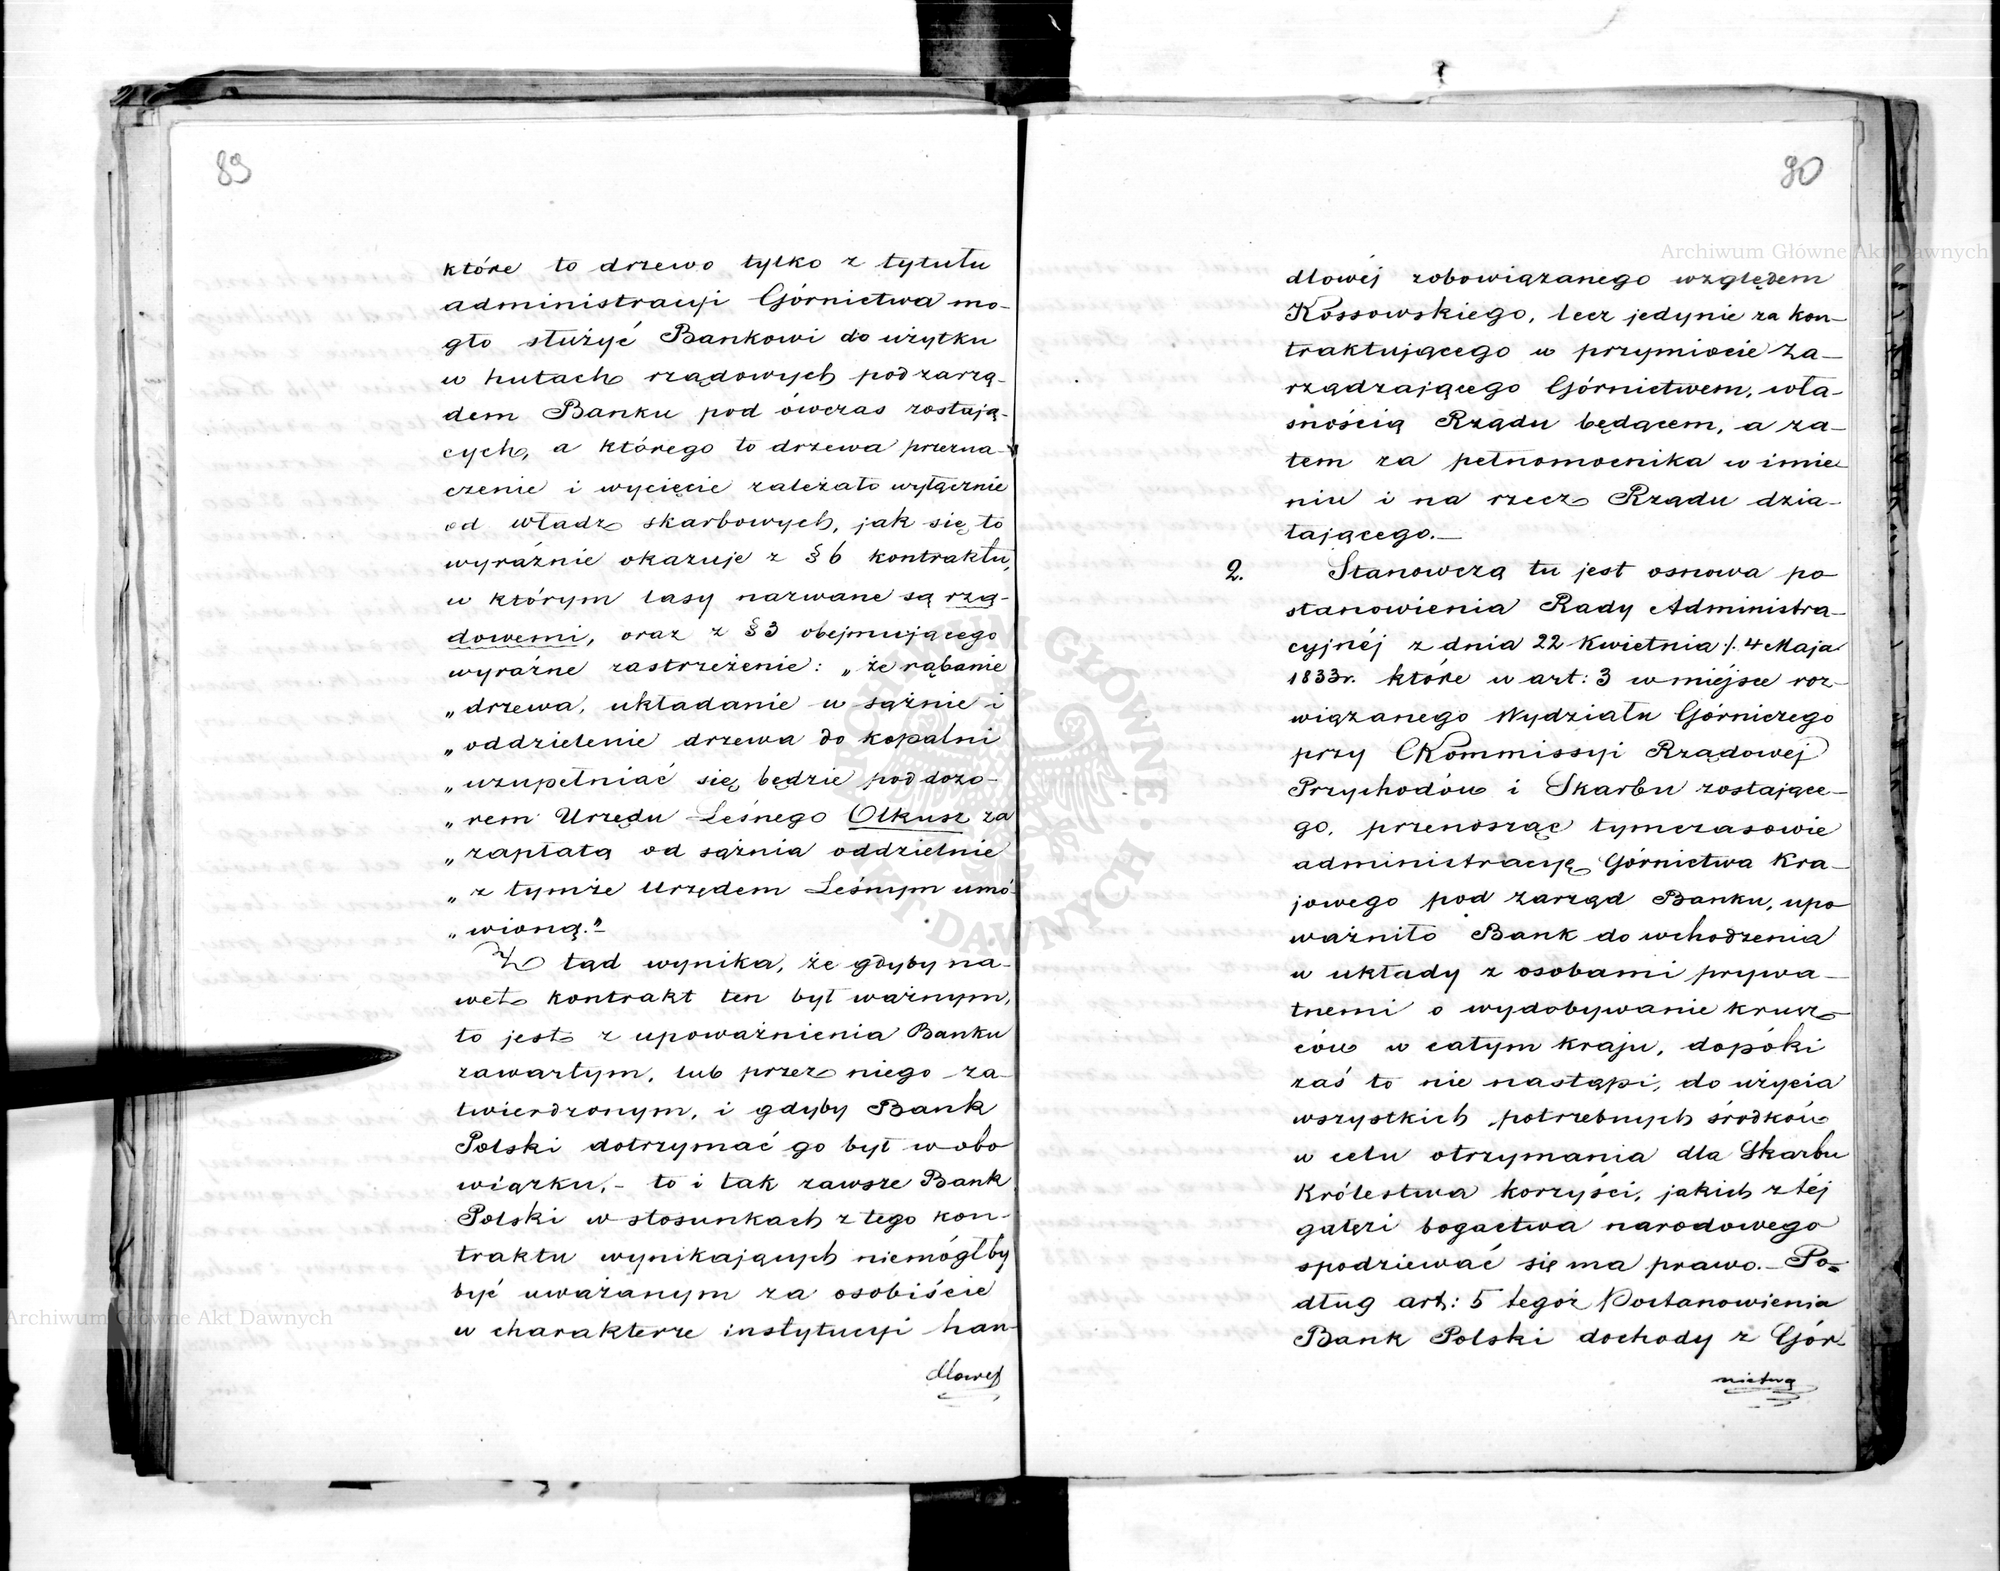 89
które to drzewo tylko z tytułu
administracyi Górnictwa mo-
gło służyć Bankowi do użytku
w hutach rządowych pod zarzą-
dem Banku pod ówczas zostają-
cych, a którego to drzewa przezna-
czenie i wycięcie zależało wyłącznie
od władz skarbowych, jak się to
wyraźnie okazuje z § 6 kontraktu,
w którym lasy nazwane są rzą-
dowemi, oraz z § 3 obejmującego
wyraźne zastrzeżenie: „że rąbanie
„drzewa, układanie w sążnie i
„oddzielenie drzewa do kopalni
„uzupełniać się będzie pod dozo-
„rem Urzędu Leśnego Olkusz za
„zapłatą od sążnia oddzielnie
„z tymże Urzędem Leśnym umó-
„wioną."
Z tąd wynika, że gdyby na-
wet kontrakt ten był ważnym,
to jest z upoważnienia Banku
zawartym, lub przez niego za-
twierdzonym, i gdyby Bank
Polski dotrzymać go był w obo
wiązku, - to i tak zawsze Bank
Polski w stosunkach z tego kon-
traktu wynikających niemógłby
być uważanym za osobiście
w charakterze instytucyi han-
dlowej
90
dlowéj zobowiązanego względem
Kossowskiego, lecz jedynie za kon-
traktującego w przymiocie za-
rządzającego Górnictwem, wła-
snością Rządu będącem, a za-
tem za pełnomocnika w imie-
niu i na rzecz Rządu dzia-
łającego.—
2. Stanowczą tu jest osnowa po
stanowienia Rady Administra-
cyjnéj z dnia 22 Kwietnia /. 4 Maja
1833r. które w art: 3 w miéjsce roz-
wiązanego Wydziału Górniczego
przy Kommissyi Rządowej
Przychodów i Skarbu zostające-
go, przenosząc tymczasowie
administracyę Górnictwa Kra-
jowego pod zarząd Banku, upo
ważniło Bank do wchodzenia
w układy z osobami prywa-
tnemi o wydobywanie krusz-
ców w całym kraju, dopóki
zaś to nie nastąpi, do użycia
wszystkich potrzebnych środków
w celu otrzymania dla Skarbu
Królestwa korzyści, jakich z téj
gałęzi bogactwa narodowego
spodziewać się ma prawo.— Po-
dług art: 5 tegoż Postanowienia
Bank Polski dochody z Gór-
nictwa
Archiwum Główne Akt Dawnych
Archiwum Główne Akt Dawnych
ARCHIWUM GŁÓWNE AKT DAWNYCH